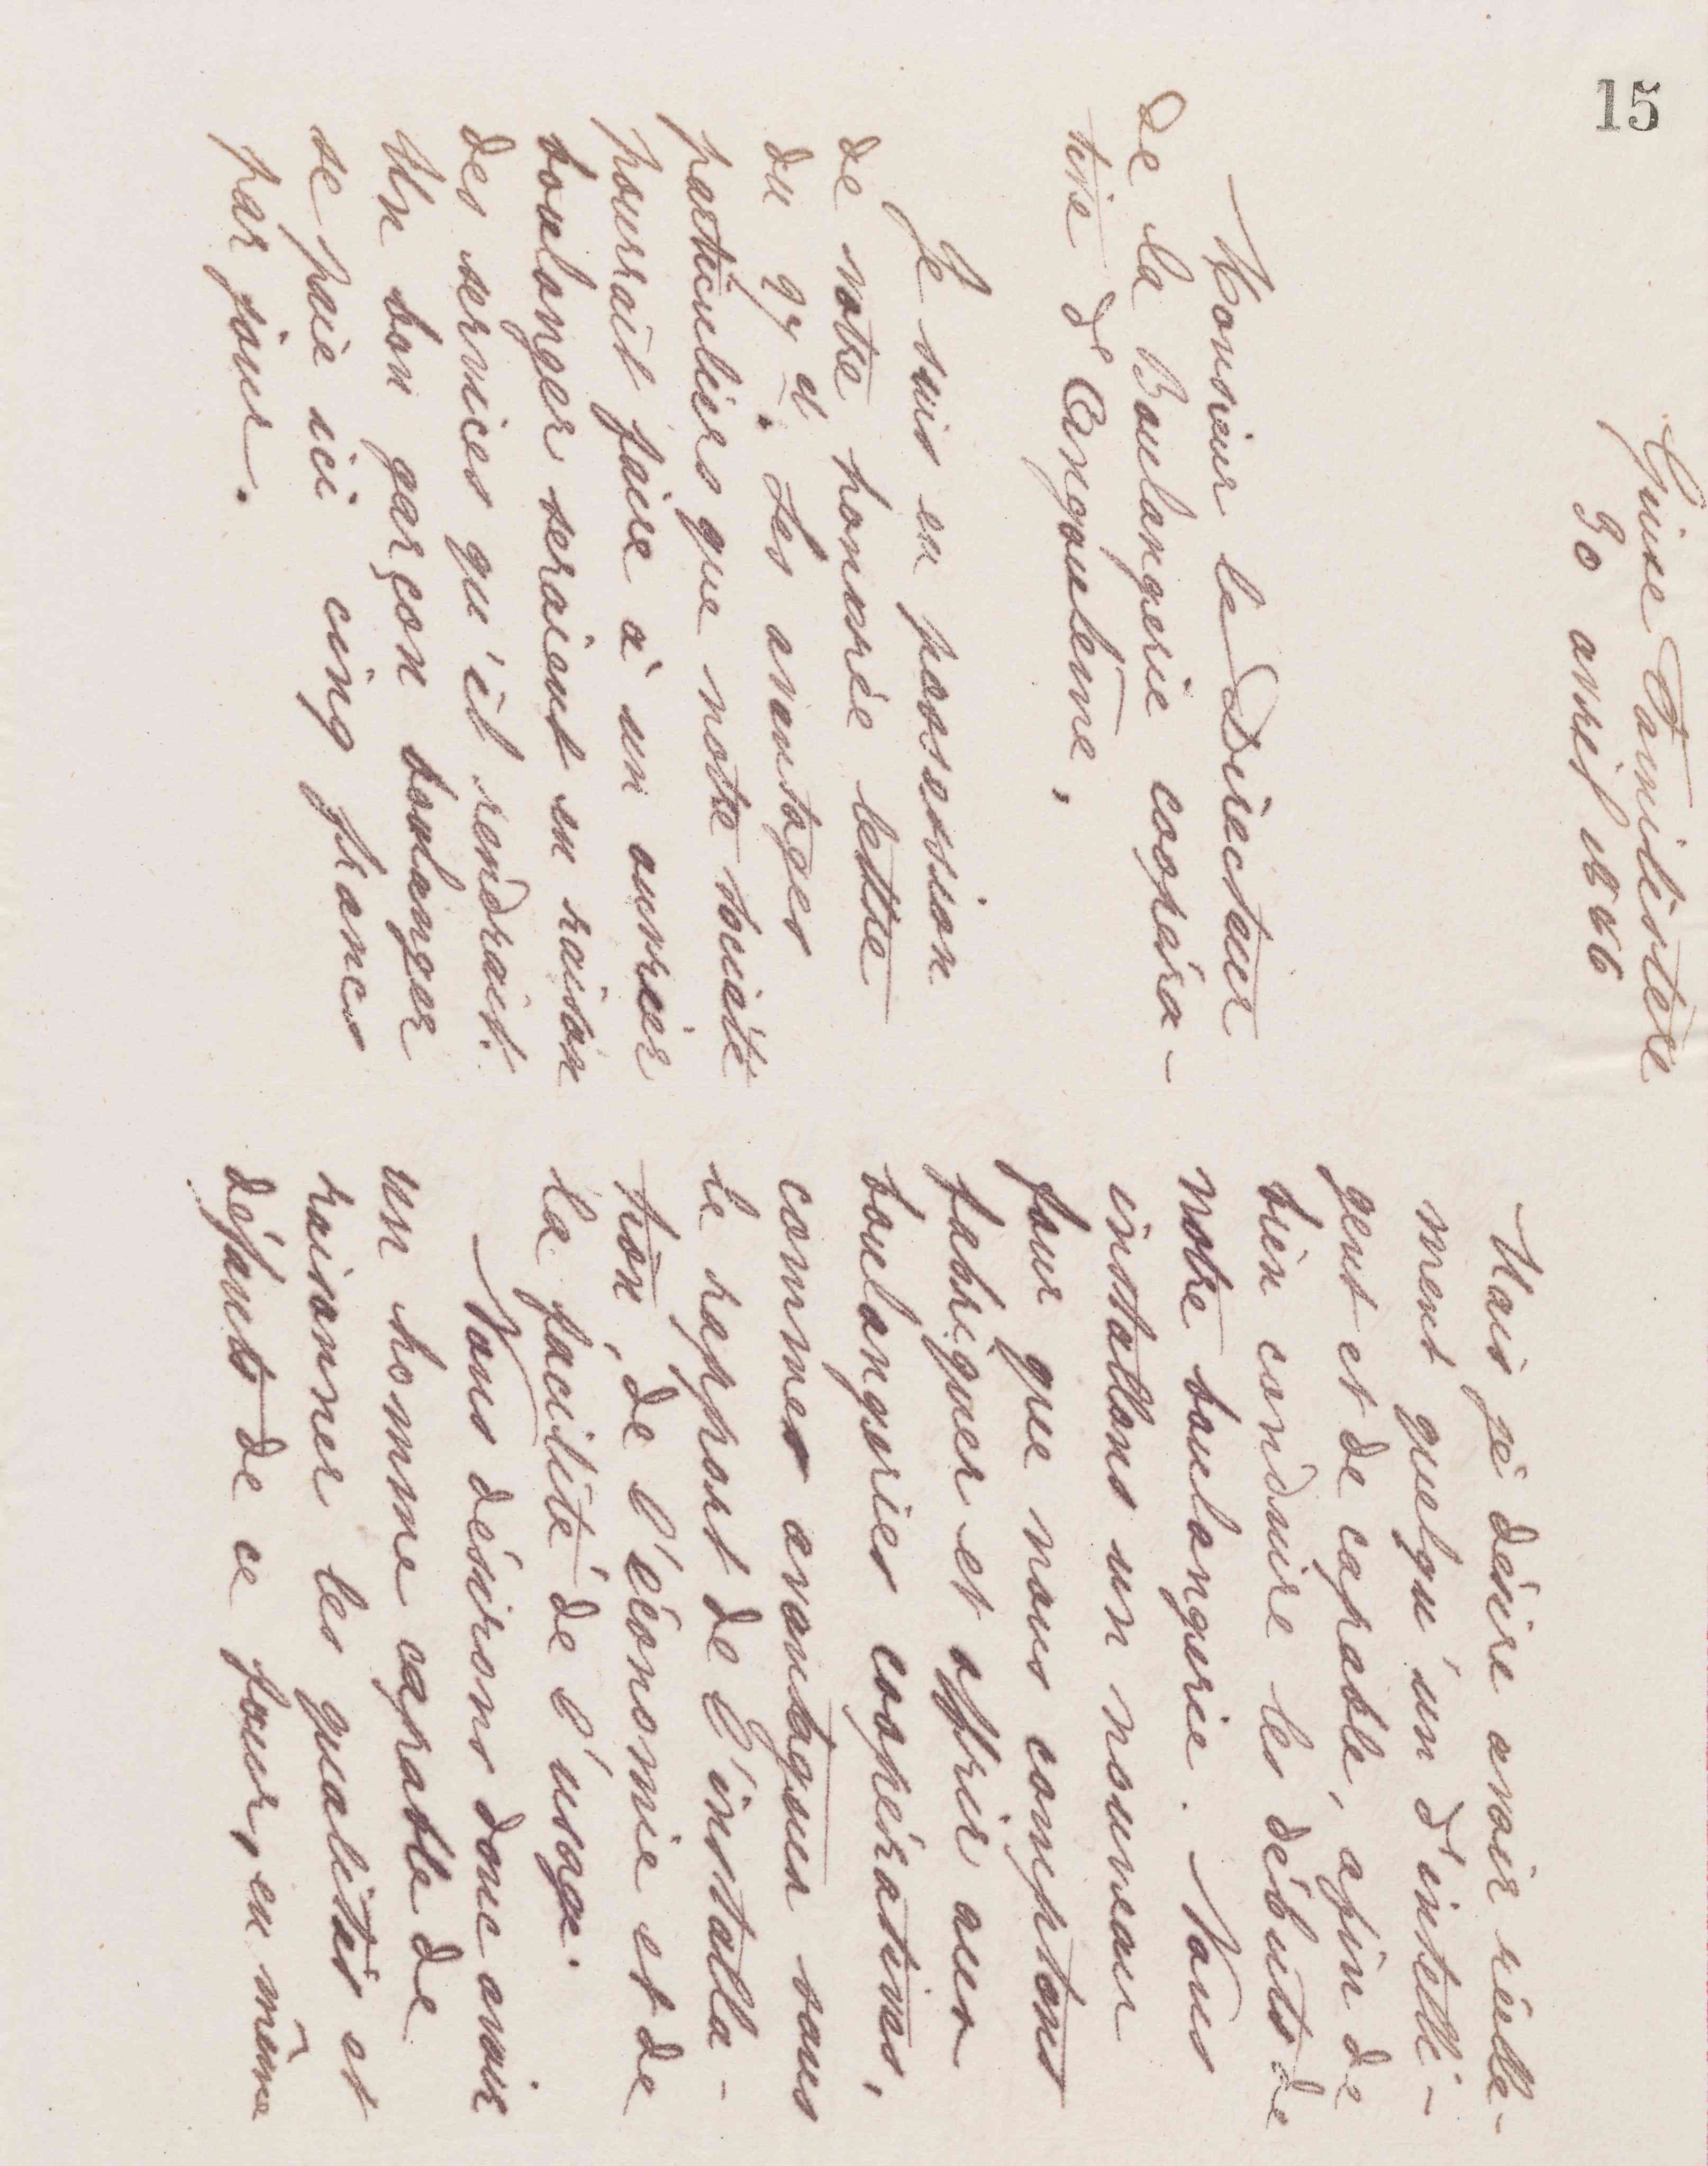 15
Guise Familistère
30 avril 1886
Monsieur le Directeur
de la Boulangerie coopéra-
tive d'Angoulême,
Je suis en possession
de votre honorée lettre
du 27 ct. Les avantages
particuliers que notre société
pourrait faire à un ouvrier
boulanger seraient en raison
des services qu'il rendrait.
Un bon garçon boulanger
se paie ici cinq francs
par jour.
Mais je désire avoir réelle-
ment quelqu'un d'intelli-
gent et de capable, afin de
bien conduire les débuts de
notre boulangerie. Nous
installons un nouveau
four que nous comptons
fabriquer et offrir aux
boulangeries coopératives,
comme avantageux sous
le rapport de l'installa-
tion, de l'économie et de
la facilité de l'usage.
Nous désirons donc avoir
un homme capable de
raisonner les qualités et
défauts de ce four, en même